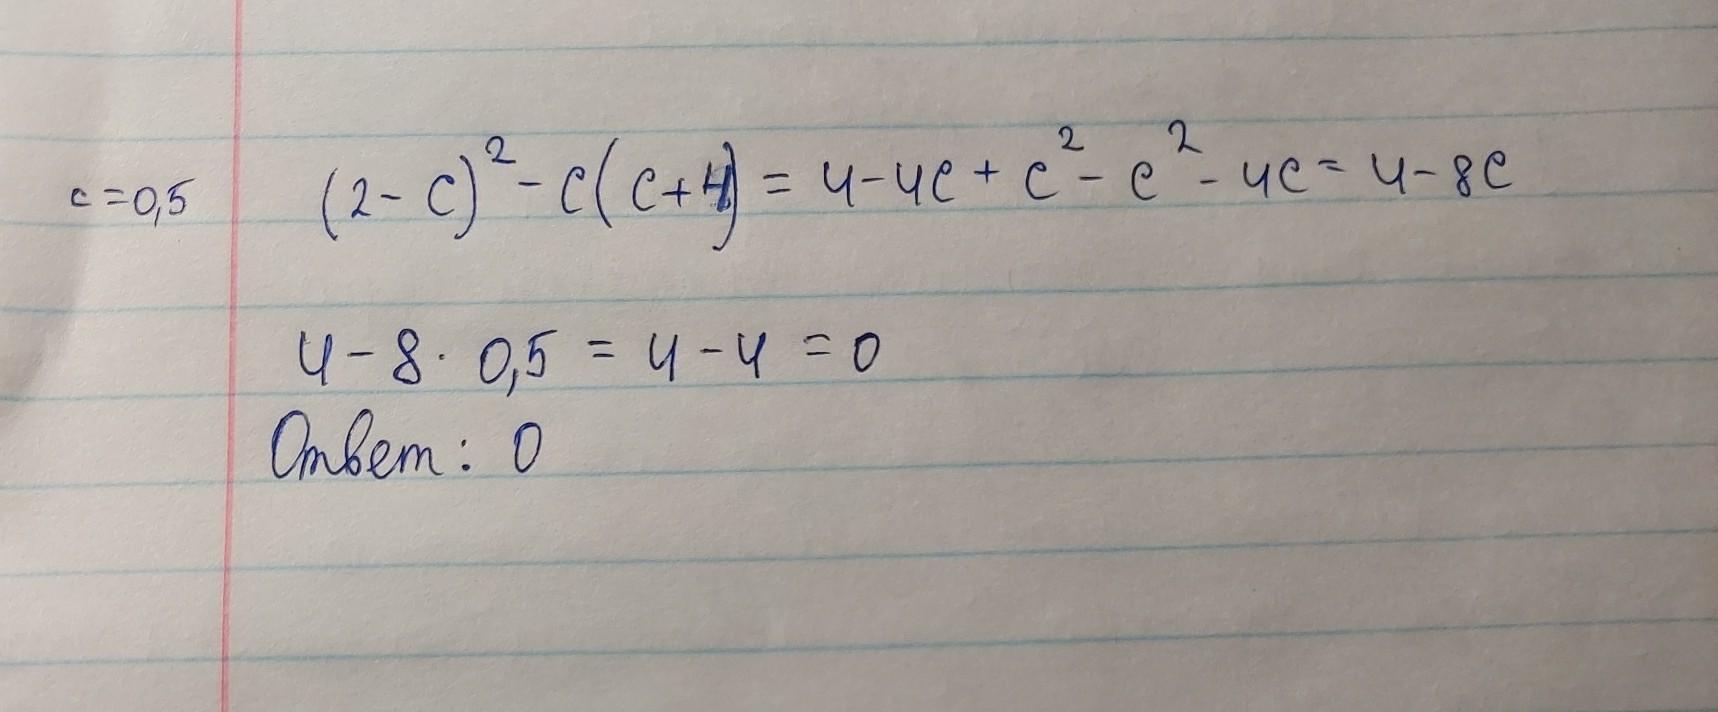 c=0,5 (2-c)²-c(c+4)=4-4c+c²-c²-4c=4-8c
4-8·0,5=4-4=0
Ответ: 0